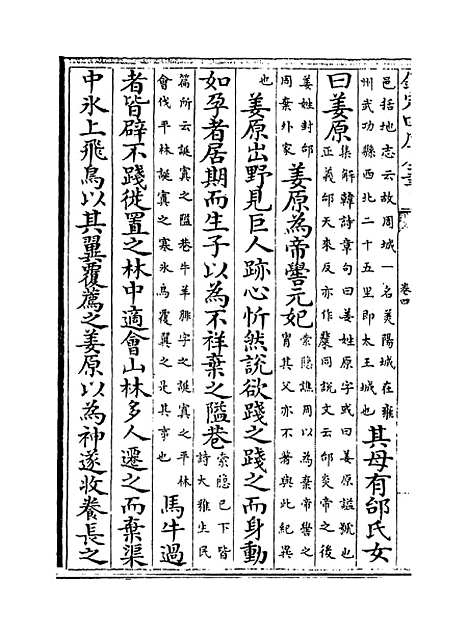 欽定四庫全書
卷四
邑括地志云故周城一名美陽城在雍
州武功縣西北二十五里即太王城也
其母有邰氏女
曰姜原
集解韓詩章句曰姜姓原字或曰姜原諡號也
正義邰天來反亦作斄同說文云邰炎帝之後
姜姓封邰
周棄外家
姜原為帝嚳元妃
索隱譙周以為棄帝嚳之
胄其父亦不著與此紀異
也
姜原出野見巨人跡心忻然說欲踐之踐之而身動
如孕者居期而生子以為不祥棄之隘巷
索隱已下皆
詩大雅生民
篇所云誕寘之隘巷牛羊腓字之誕寘之平林
會伐平林誕寘之寒氷鳥覆翼之是其事也
馬牛過
者皆辟不踐徙置之林中適會山林多人遷之而棄渠
中氷上飛鳥以其翼覆薦之姜原以為神遂收養長之